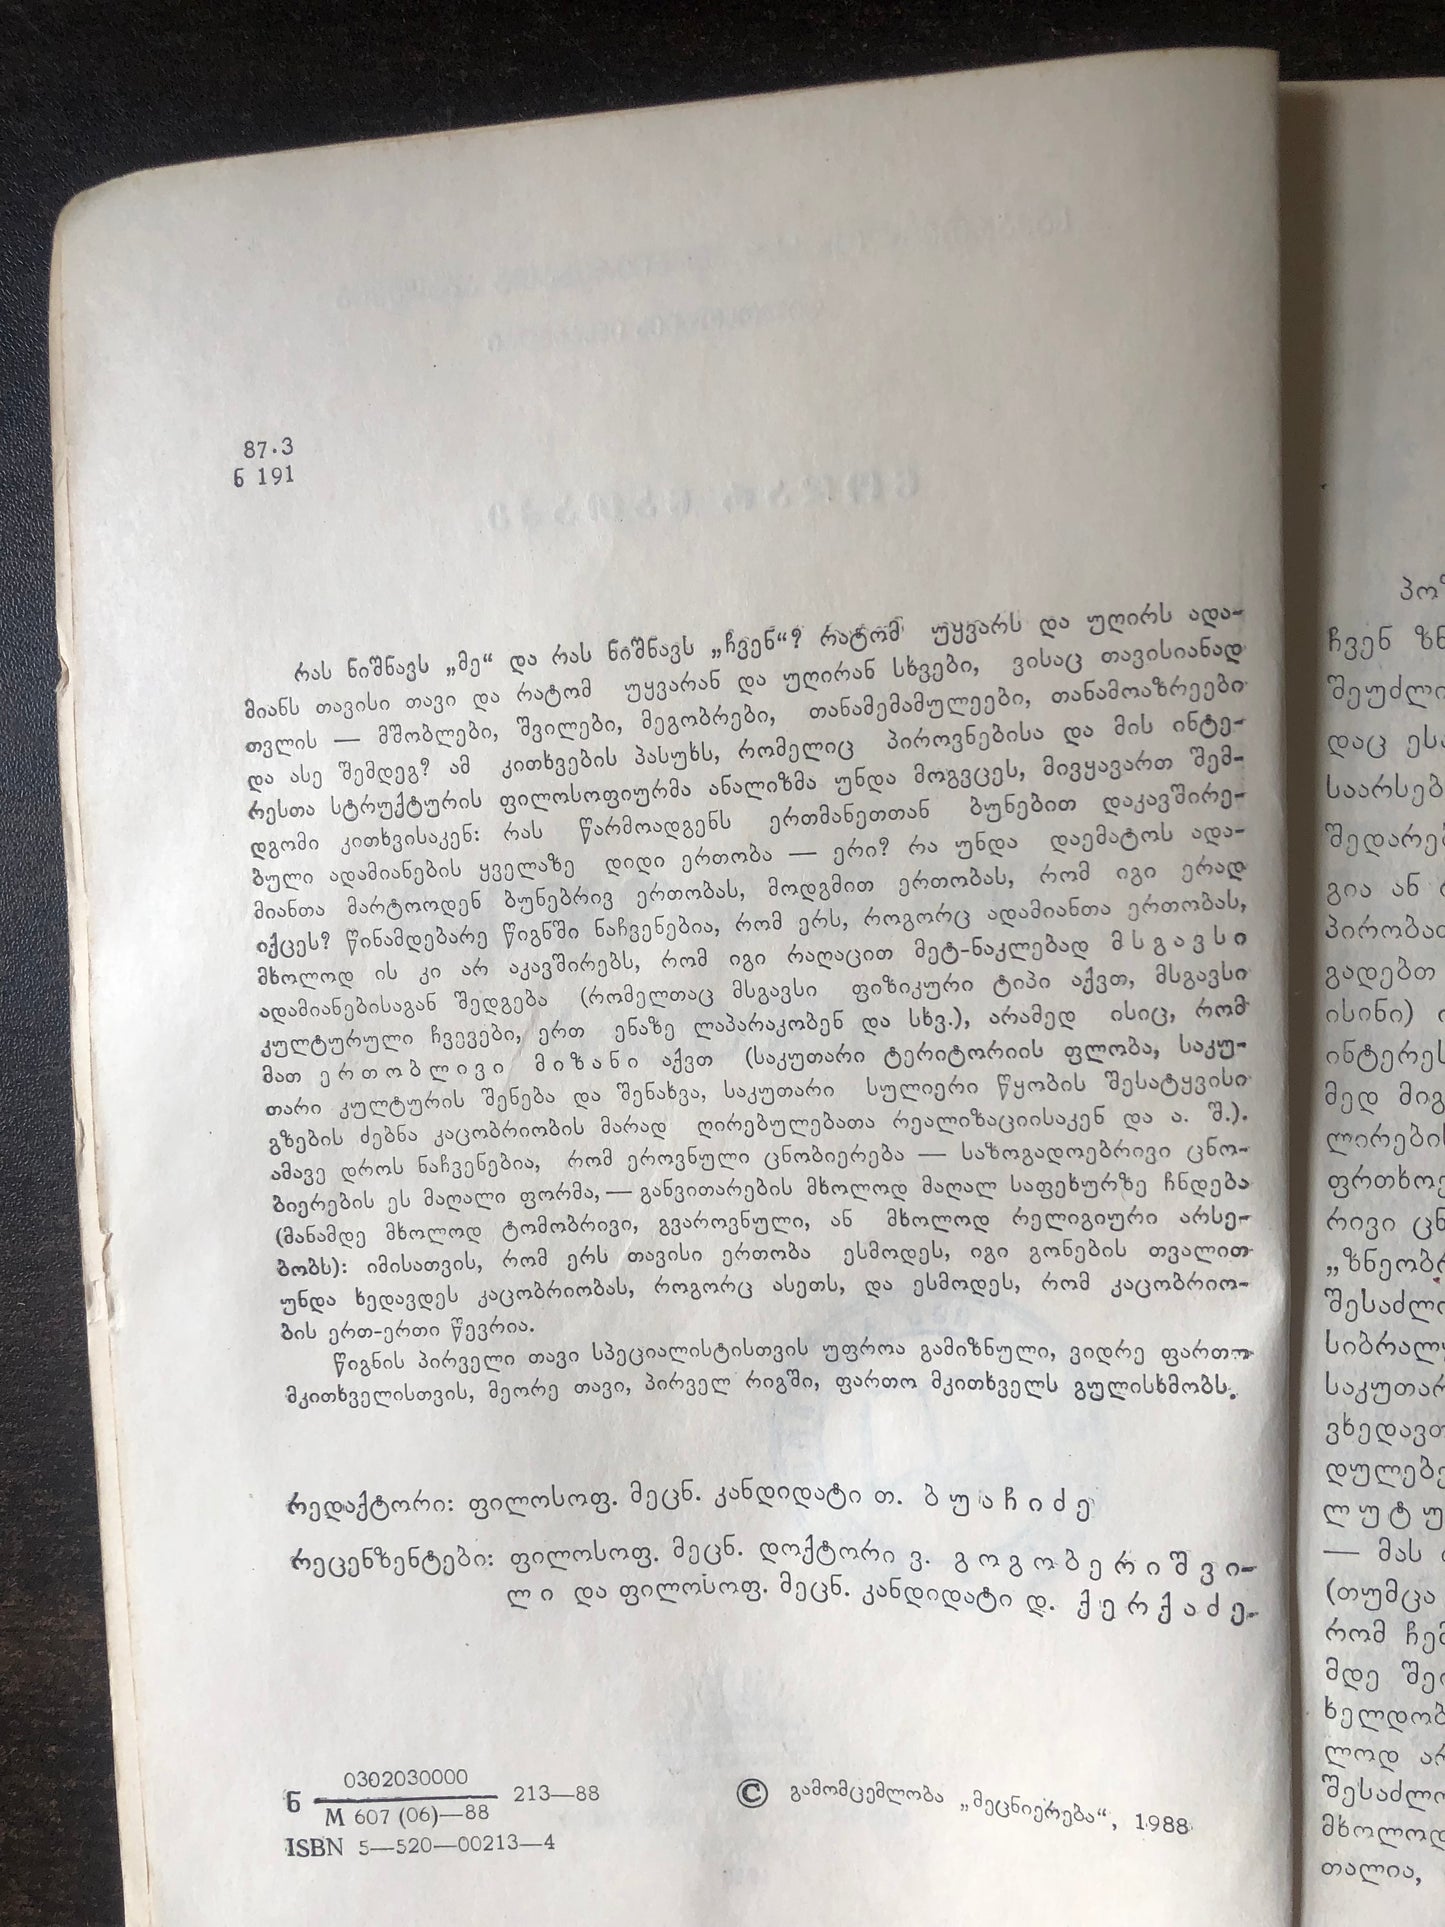 87.3
ნ 191
რას ნიშნავს „მე“ და რას ნიშნავს „ჩვენ“? რატომ უყვარს და უღირს ადა-
მიანს თავისი თავი და რატომ უყვარან და უღირან სხვები, ვისაც თავისიანად
თვლის — მშობლები, შვილები, მეგობრები, თანამემამულეები, თანამოაზრეები
და ასე შემდეგ? ამ კითხვების პასუხს, რომელიც პიროვნებისა და მის ინტე-
რესთა სტრუქტურის ფილოსოფიურმა ანალიზმა უნდა მოგვცეს, მივყავართ შემ-
დგომი კითხვისაკენ: რას წარმოადგენს ერთმანეთთან ბუნებით დაკავშირე-
ბული ადამიანების ყველაზე დიდი ერთობა — ერი? რა უნდა დაემატოს ადა-
მიანთა მარტოოდენ ბუნებრივ ერთობას, მოდგმით ერთობას, რომ იგი ერად
იქცეს? წინამდებარე წიგნში ნაჩვენებია, რომ ერს, როგორც ადამიანთა ერთობას,
მხოლოდ ის კი არ აკავშირებს, რომ იგი რაღაცით მეტ-ნაკლებად მსგავსი
ადამიანებისაგან შედგება (რომელთაც მსგავსი ფიზიკური ტიპი აქვთ, მსგავსი
კულტურული ჩვევები, ერთ ენაზე ლაპარაკობენ და სხვ.), არამედ ისიც, რომ
მათ ერთობლივი მიზანი აქვთ (საკუთარი ტერიტორიის ფლობა, საკუ-
თარი კულტურის შენება და შენახვა, საკუთარი სულიერი წყობის შესატყვისი
გზების ძებნა კაცობრიობის მარად ღირებულებათა რეალიზაციისაკენ და ა. შ.).
ამავე დროს ნაჩვენებია, რომ ეროვნული ცნობიერება — საზოგადოებრივი ცნო-
ბიერების ეს მაღალი ფორმა, — განვითარების მხოლოდ მაღალ საფეხურზე ჩნდება
(მანამდე მხოლოდ ტომობრივი, გვაროვნული, ან მხოლოდ რელიგიური არსე-
ბობს): იმისათვის, რომ ერს თავისი ერთობა ესმოდეს, იგი გონების თვალით
უნდა ხედავდეს კაცობრიობას, როგორც ასეთს, და ესმოდეს, რომ კაცობრიო-
ბის ერთ-ერთი წევრია.
წიგნის პირველი თავი სპეციალისტისთვის უფროა გამიზნული, ვიდრე ფართო
მკითხველისთვის, მეორე თავი, პირველ რიგში, ფართო მკითხველს გულისხმობს.
რედაქტორი: ფილოსოფ. მეცნ. კანდიდატი თ. ბუაჩიძე
რეცენზენტები: ფილოსოფ. მეცნ. დოქტორი ვ. გოგობერიშვი-
ლი და ფილოსოფ. მეცნ. კანდიდატი დ. ქერქაძე.
0302030000
ნ 213—88
M 607 (06)—88
ISBN 5—520—00213—4
© გამომცემლობა „მეცნიერება“, 1988
ჩვენ
შეუძლი
დაც
საარსებ
შედარებ
გია ან
პირობათ
გადებთ
ისინი)
ინტერეს
მედ მიგ
ლირების
ფრთხოე
რივი ცნ
„ზნეობრ
შესაძლო
სიბრალუ
საკუთარ
ვხედავთ
დულებე
ლუტუ
— მას
(თუმცა
რომ ჩემ
მდე
ხელდობ
ლოდ არ
შესაძლო
მხოლოდ
თალია,